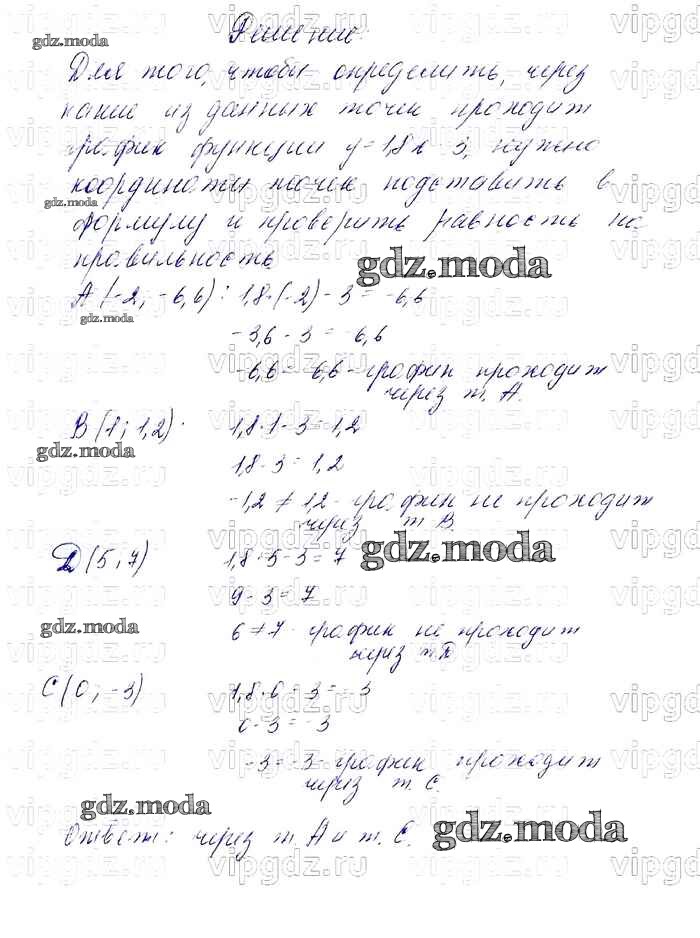 Решение:
Для того, чтобы определить, через
какие из данных точек проходит
график функции y=1,8x-3, нужно
координаты точек подставить в
формулу и проверить равность на
правильность
gdz.moda
A(-2; -6,6): 1,8·(-2)-3=-6,6
-3,6-3=-6,6
-6,6=-6,6- график проходит
через т. А.
B(1; 1,2): 1,8·1-3=1,2
1,8-3=1,2
-1,2≠1,2- график не проходит
через т В.
Д(5; 7) 1,8·5-3=7
9-3=7
6≠7- график не проходит
через т.
C(0; -3) 1,8·0-3=-3
0-3=-3
-3=-3- график проходит
через т. С.
Ответ: через т. А и т. С.
gdz.moda
vipgdz.ru